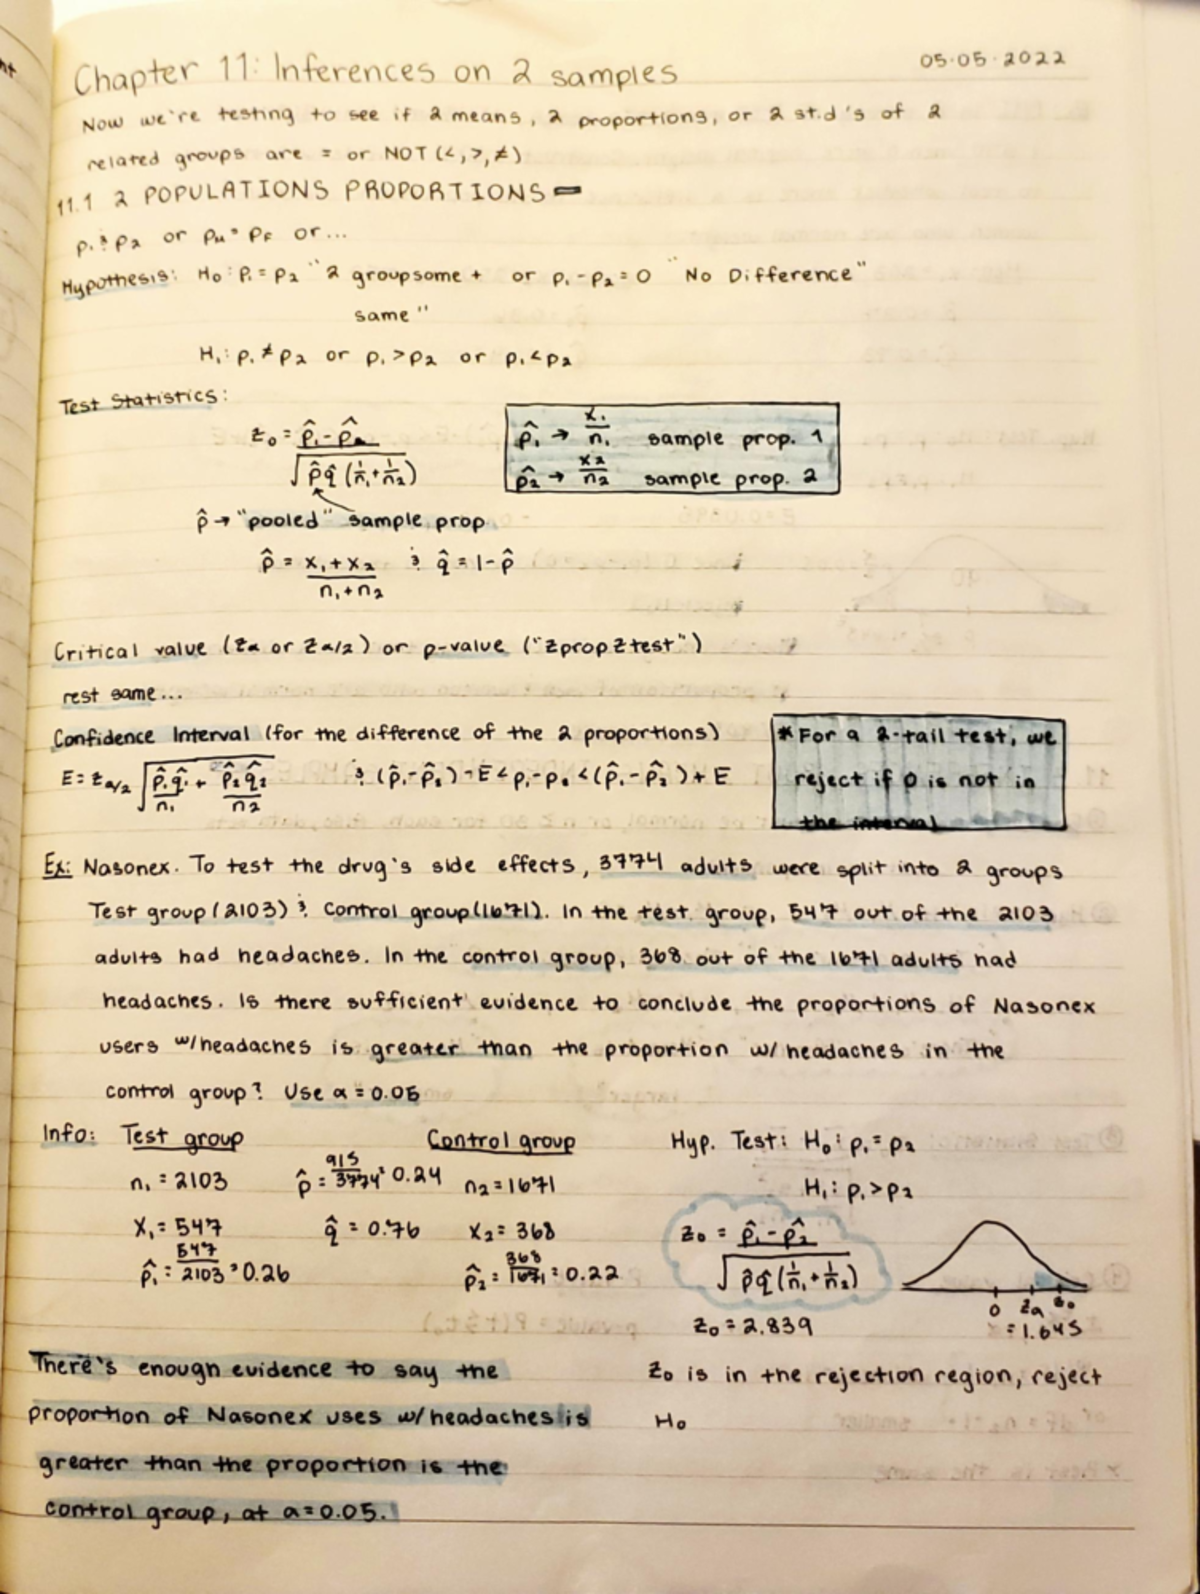 Chapter 11: Inferences on 2 samples
05.05.2022
Now we're testing to see if 2 means, 2 proportions, or 2 st.d's of 2
related groups are = or NOT (<, >, ≠)
11.1 2 POPULATIONS PROPORTIONS
p₁ & p₂ or pₘ & p_F or...
Hypothesis: H₀: p₁ = p₂ "2 groupsome + or p₁ - p₂ = 0 "No Difference"
same"
H₁: p₁ ≠ p₂ or p₁ > p₂ or p₁ < p₂
Test Statistics:
z₀ = (p̂₁ - p̂₂) / √(p̂q̂ (1/n₁ + 1/n₂))
p̂₁ → x₁/n₁ sample prop. 1
p̂₂ → x₂/n₂ sample prop. 2
p̂ → "pooled" sample prop
p̂ = (x₁ + x₂)/(n₁ + n₂) & q̂ = 1 - p̂
Critical value (zα or zα/2) or p-value ("2propZtest")
rest same...
Confidence Interval (for the difference of the 2 proportions)
E = zα/2 √(p̂₁q̂₁/n₁ + p̂₂q̂₂/n₂) & (p̂₁ - p̂₂) - E < p₁ - p₂ < (p̂₁ - p̂₂) + E
* For a 2-tail test, we
reject if 0 is not in
the interval
Ex: Nasonex. To test the drug's side effects, 3774 adults were split into 2 groups
Test group (2103) & Control group (1671). In the test group, 547 out of the 2103
adults had headaches. In the control group, 368 out of the 1671 adults had
headaches. Is there sufficient evidence to conclude the proportions of Nasonex
users w/headaches is greater than the proportion w/ headaches in the
control group? Use α = 0.05
Info: Test group
n₁ = 2103
x₁ = 547
p̂₁ = 547/2103 = 0.26
p̂ = 915/3774 = 0.24
q̂ = 0.76
Control group
n₂ = 1671
x₂ = 368
p̂₂ = 368/1671 = 0.22
Hyp. Test: H₀: p₁ = p₂
H₁: p₁ > p₂
z₀ = (p̂₁ - p̂₂) / √(p̂q̂ (1/n₁ + 1/n₂))
z₀ = 2.839
0 zα z₀
= 1.645
z₀ is in the rejection region, reject
H₀
There's enough evidence to say the
proportion of Nasonex uses w/headaches is
greater than the proportion is the
control group, at α = 0.05.